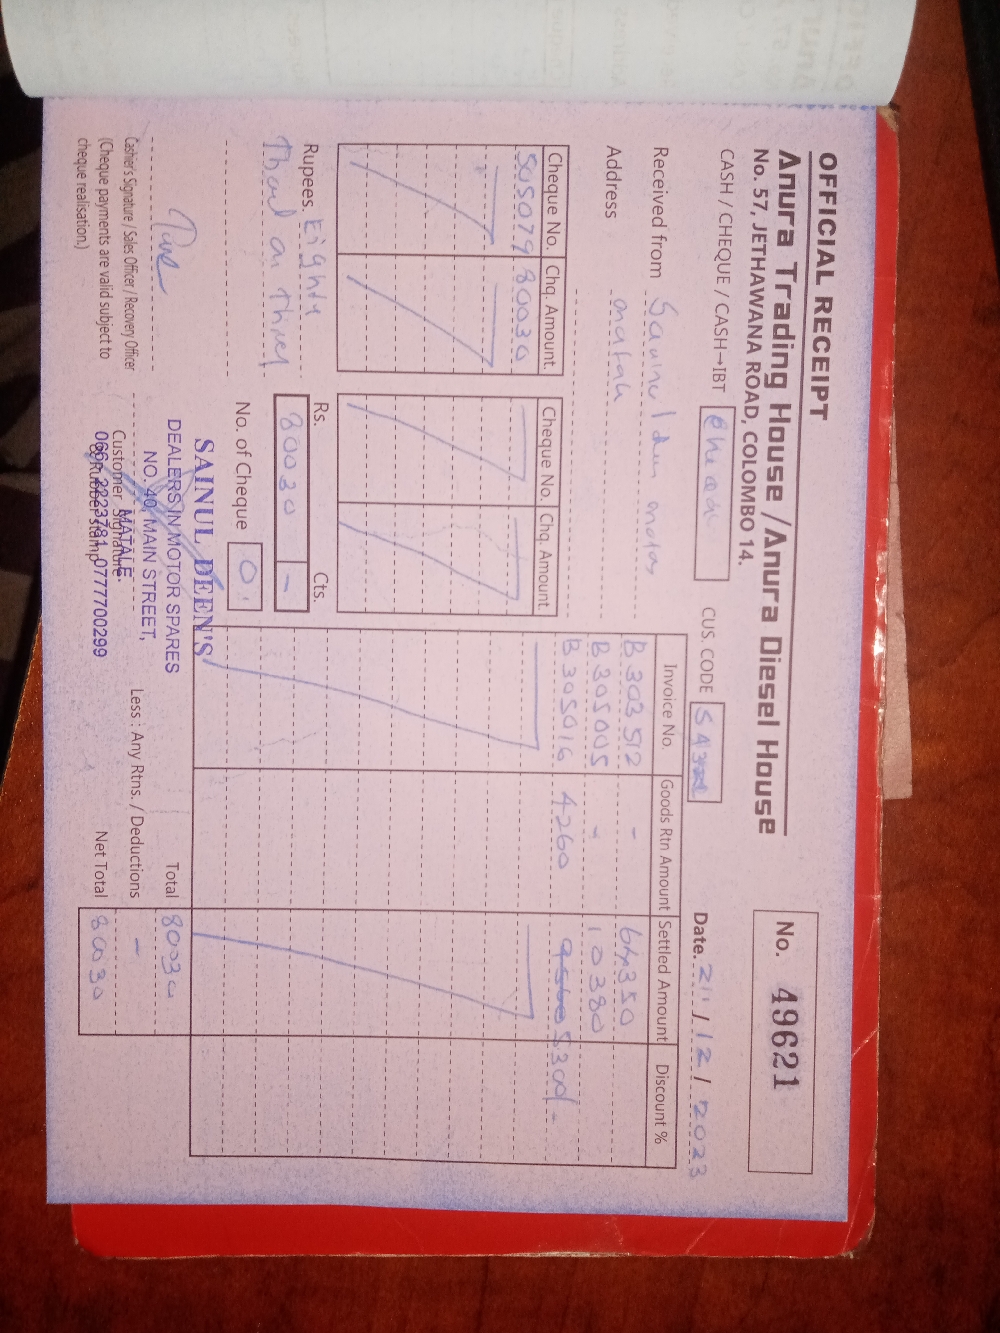 OFFICIAL RECEIPT
Anura Trading House / Anura Diesel House
No. 57, JETHAWANA ROAD, COLOMBO 14.
No. 49621
CASH / CHEQUE / CASH→IBT
CUS. CODE
Date. 21 / 12 / 2023
Received from
Address
Cheque No. Chq. Amount. Cheque No. Chq. Amount.
505079 80030
Invoice No. Goods Rtn Amount Settled Amount Discount %
B 303512 - 64350
B 305005 - 10380
B 305016 4260
Rupees.
Rs. Cts.
80030 -
No. of Cheque 01
SAINUL DEEN'S
DEALERS IN MOTOR SPARES
NO. 40, MAIN STREET,
MATALE.
066-2223781, 0777700299
Cashier's Signature / Sales Officer / Recovery Officer
(Cheque payments are valid subject to
cheque realisation.)
Customer Signature
& Rubber Stamp
Total 80030
Less : Any Rtns. / Deductions -
Net Total 80030